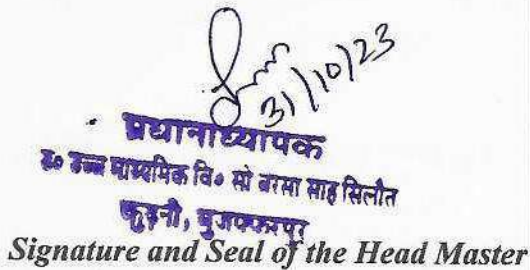 31/10/23
प्रधानाध्यापक
उ० उच्च माध्यमिक वि० मो बरसा साह सिलौत
कुढ़नी, मुजफ्फरपुर
Signature and Seal of the Head Master